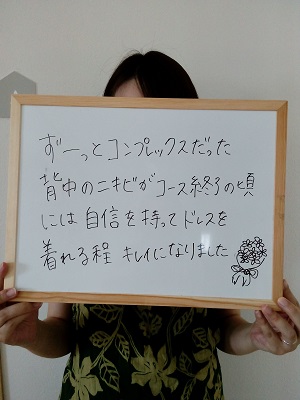 ずーっとコンプレックスだった
背中のニキビがコース終了の頃
には自信を持ってドレスを
着れる程 キレイになりました